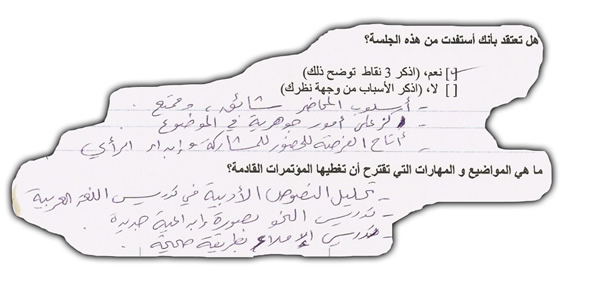 هل تعتقد بأنك أستفدت من هذه الجلسة؟
[✓] نعم، (اذكر 3 نقاط توضح ذلك)
[ ] لا، (اذكر الأسباب من وجهة نظرك)
- أسلوب المحاضر شائق، وممتع.
- ركز على أمور جوهرية في الموضوع.
- أتاح الفرصة للحضور للمشاركة وإبداء الرأي
ما هي المواضيع و المهارات التي تقترح أن تغطيها المؤتمرات القادمة؟
- تحليل النصوص الأدبية في تدريس اللغة العربية
- تدريس النحو بصورة وإبداعية جديدة.
- تدريس الإملاء بطريقة صحيحة.